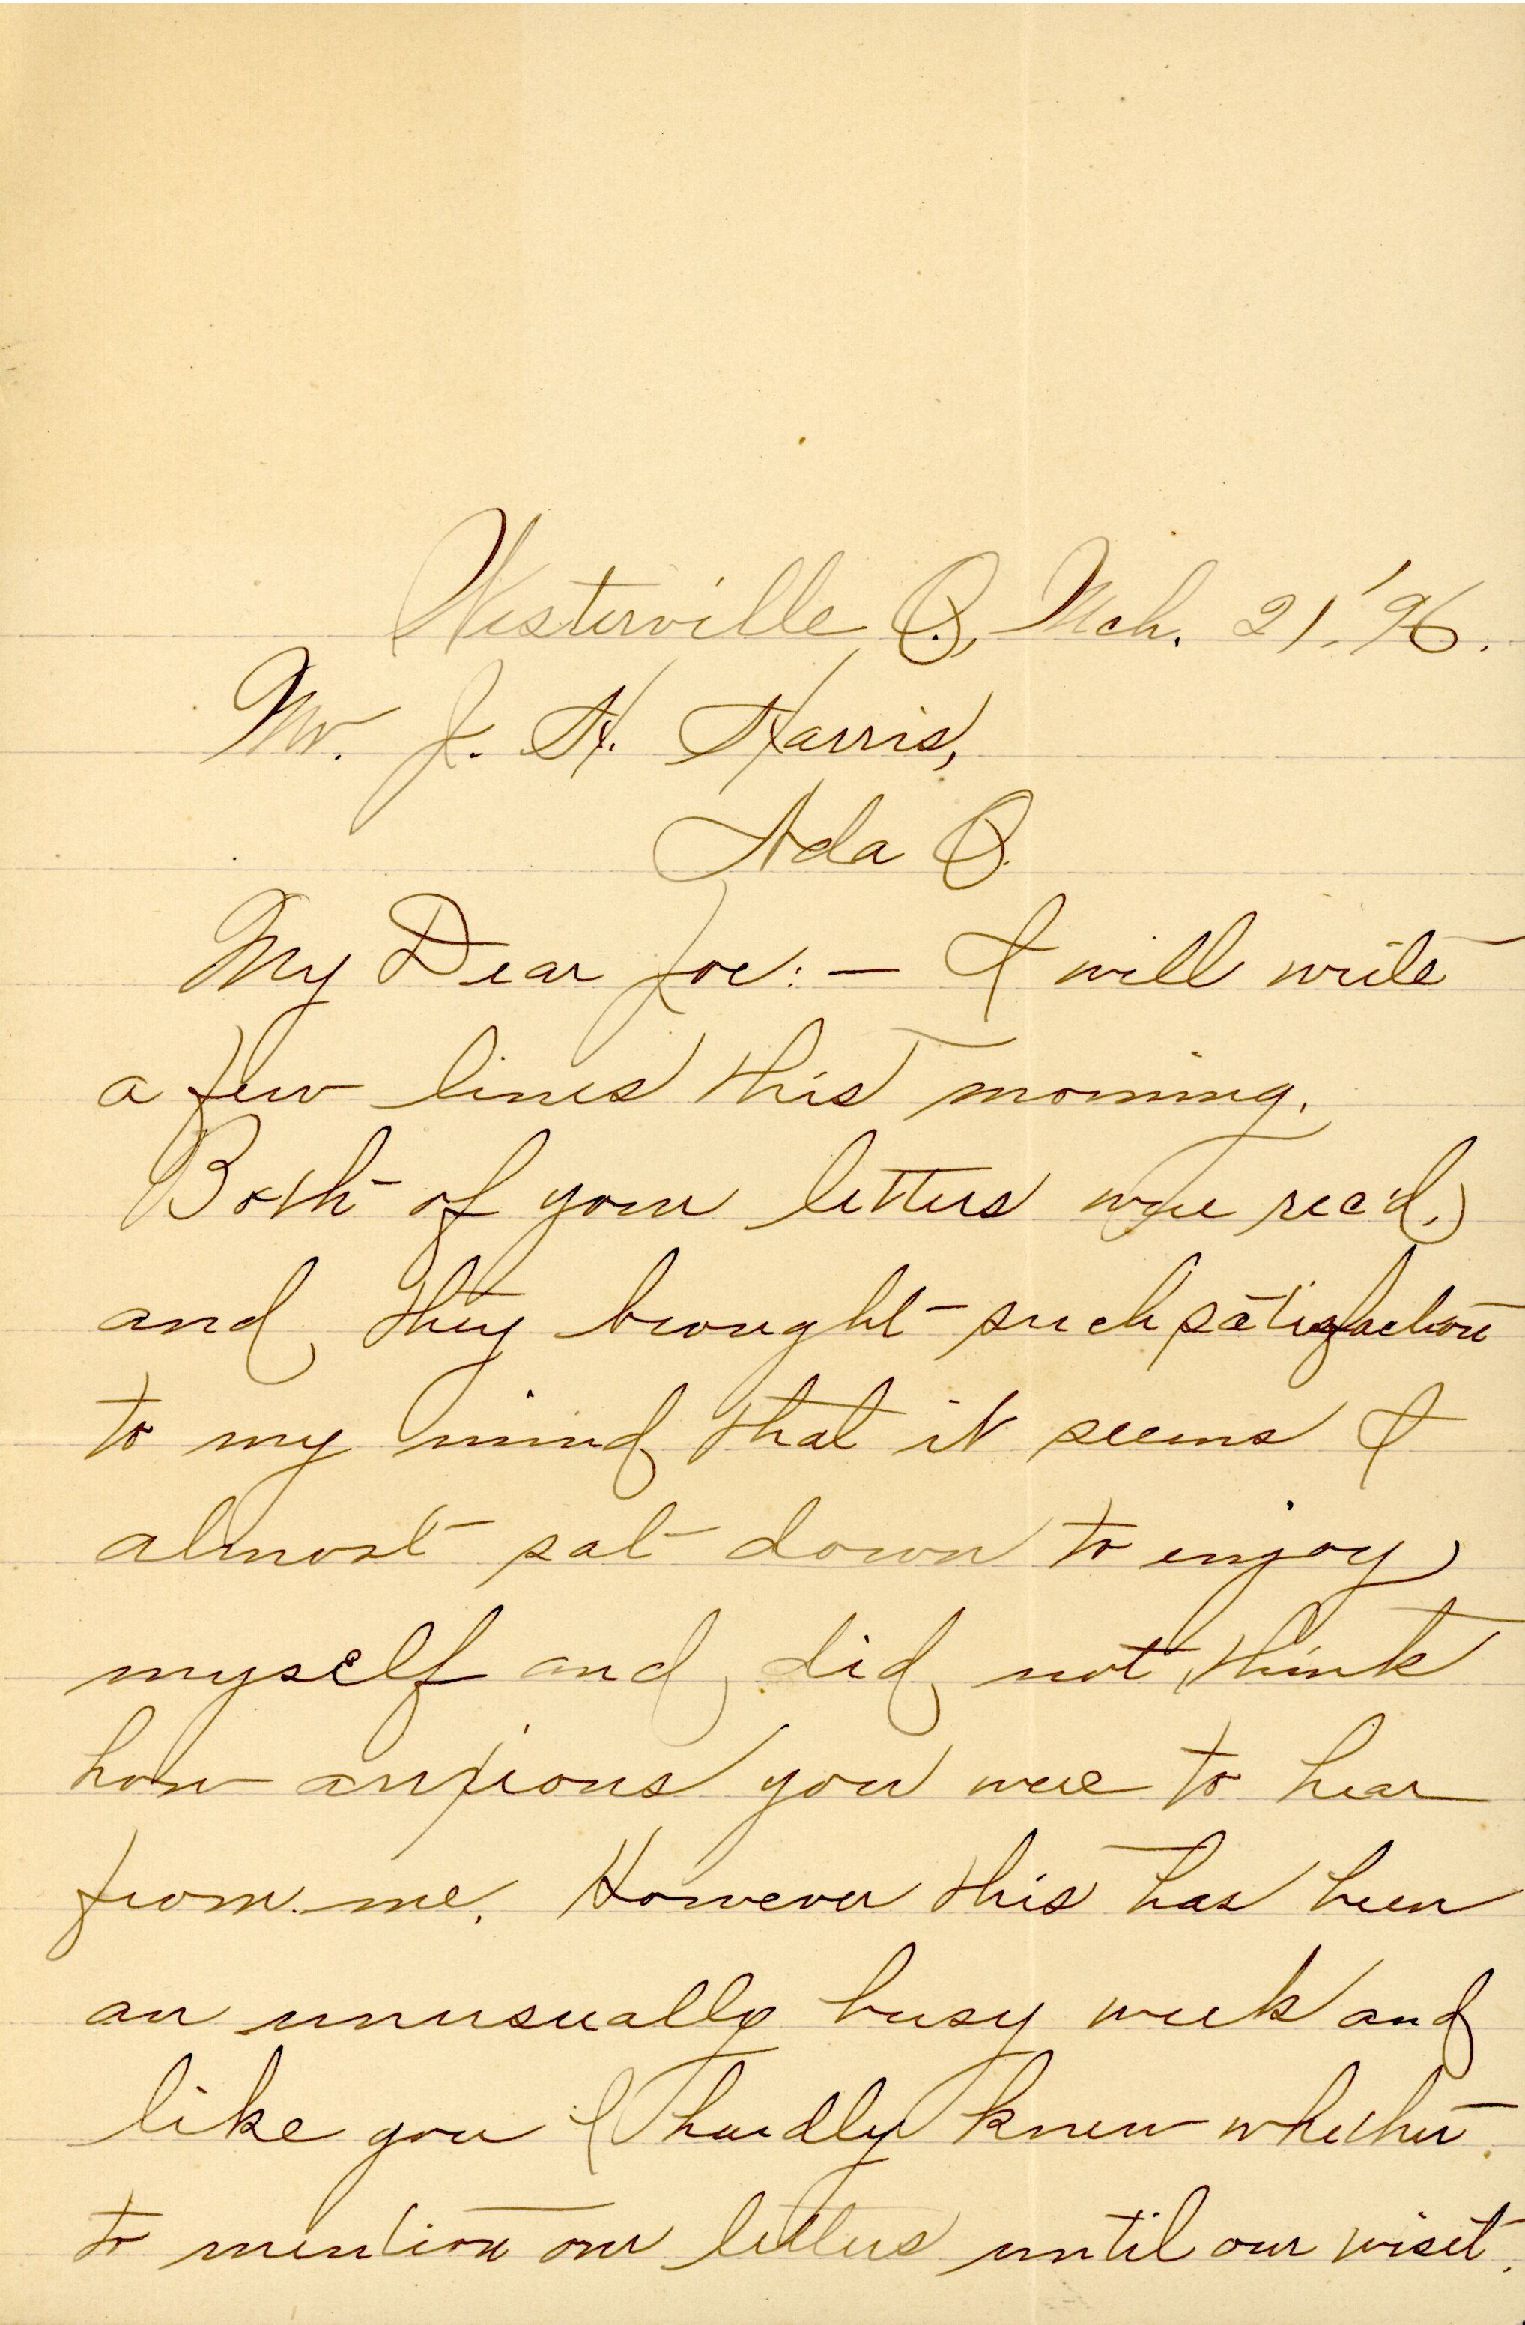 Westerville O., Mch. 21, '96.
Mr. J. H. Harris,
Ada O.
My Dear Joe: — I will write
a few lines this morning.
Both of your letters were rec'd,
and they brought such satisfaction
to my mind that it seems I
almost sat down to enjoy
myself and did not think
how anxious you were to hear
from me. However this has been
an unusually busy week and
like you I hardly knew whether
to mention our letters until our visit.